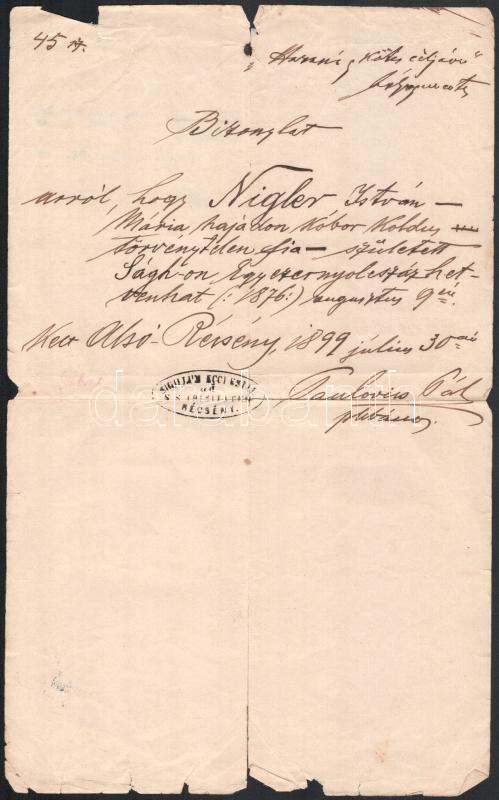 45 sz.
Házassá "Kötés céljára"
bélyegmentes
Bizonylat
arról, hogy Nigler István —
Mária hajadon Kóbor Koldus
törvénytelen fia — született
Ságh-on Egyezernyolcszázhet-
venhat (: 1876 :) augusztus 9én.
Kelt Alsó-Récsény, 1899 július 30án
SIGILLUM ECCLESIAE
RÉCSÉNY.
Paulovics Pál
plébános.
darabanth